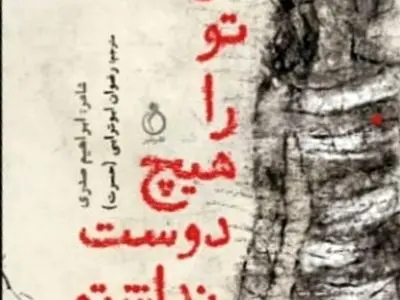 تو
را
هیچ
دوست
نداشتم
شاعر: ابراهیم صدری
مترجم: رضوان ابوترابی (حسرت)